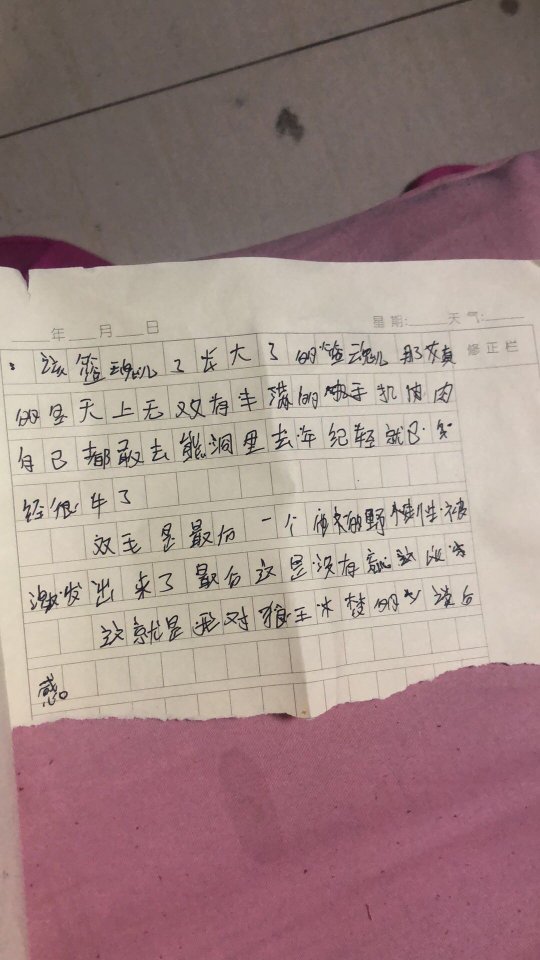 年 月 日 星期: 天气:
修正栏
该蓝魂儿了长大了的蓝魂儿那真
的是天上无双有丰满的 肌肉肉
自己都敢去熊洞里去年纪轻就已
经很牛了
双毛是最后一个 的野性 被
激发出来了最后这是没有
这就是我对狼王梦的 读后
感。